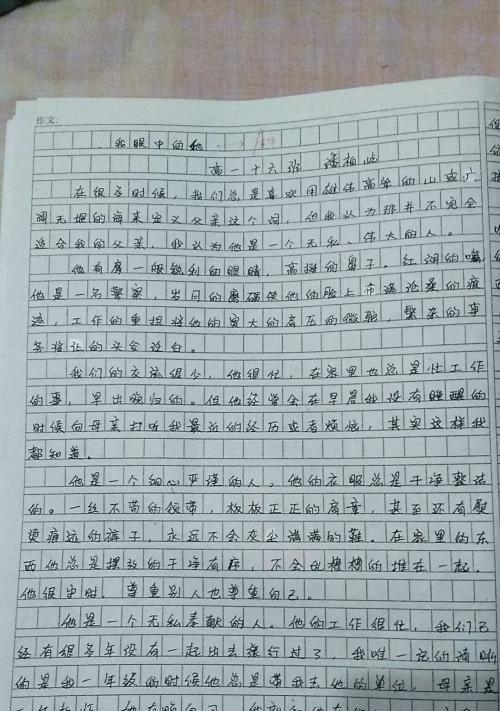 作文:
我眼中的他
高一十六班 潘柏屹
在很多时候，我们总是喜欢用雄伟高耸的山或广
阔无垠的海来定义父亲这个词，但我认为那并不完全
适合我的父亲，我认为他是一个无私、伟大的人。
他有鹰一般锐利的眼睛，高挺的鼻子，红润的嘴
他是一名警察，岁月的磨砺使他的脸上布满沧桑的痕
迹，工作的重担将他的宽大的肩压的微驼，繁杂的事
务将让的头发泛白。
我们的交流很少，他很忙，在家里也总是忙工作
的事，早出晚归的。但他经常会在早晨我没有睡醒的
时候向母亲打听我最近的经历或者烦恼，其实这样我
都知道。
他是一个细心严谨的人，他的衣服总是干净整洁
的。一丝不苟的领带，板板正正的肩章，甚至还有熨
烫痕迹的裤子，永远不会灰尘满满的鞋。在家里的东
西他总是摆放的干净有序，不会乱糟糟的堆在一起。
他很守时，尊重别人也尊重自己。
他是一个无私奉献的人。他的工作很忙，我们已
经有很多年没有一起出去旅行过了，我唯一记的清晰
的是我一年级的时候他总是带我去他的单位，母亲是